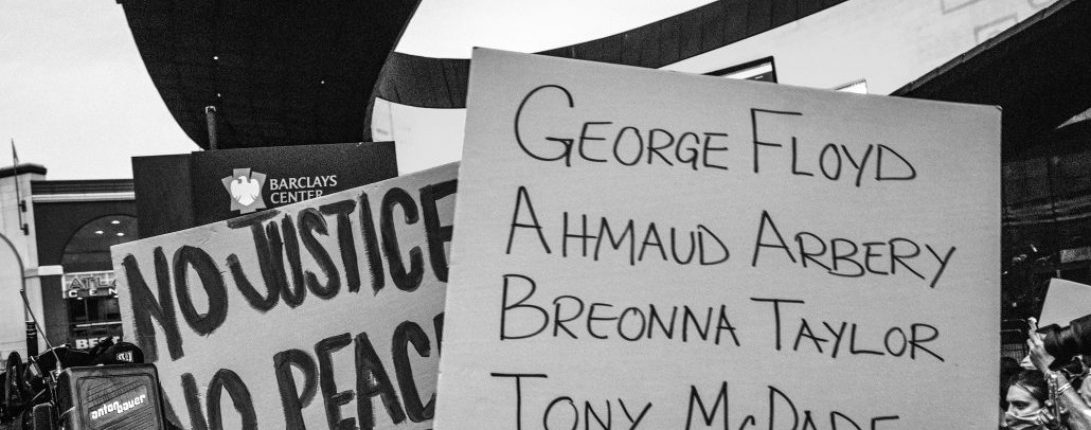 BARCLAYS
CENTER
NO JUSTICE
NO PEAC
GEORGE FLOYD
AHMAUD ARBERY
BREONNA TAYLOR
TONY McDADE
ATLA
CEN
BEST
anton bauer